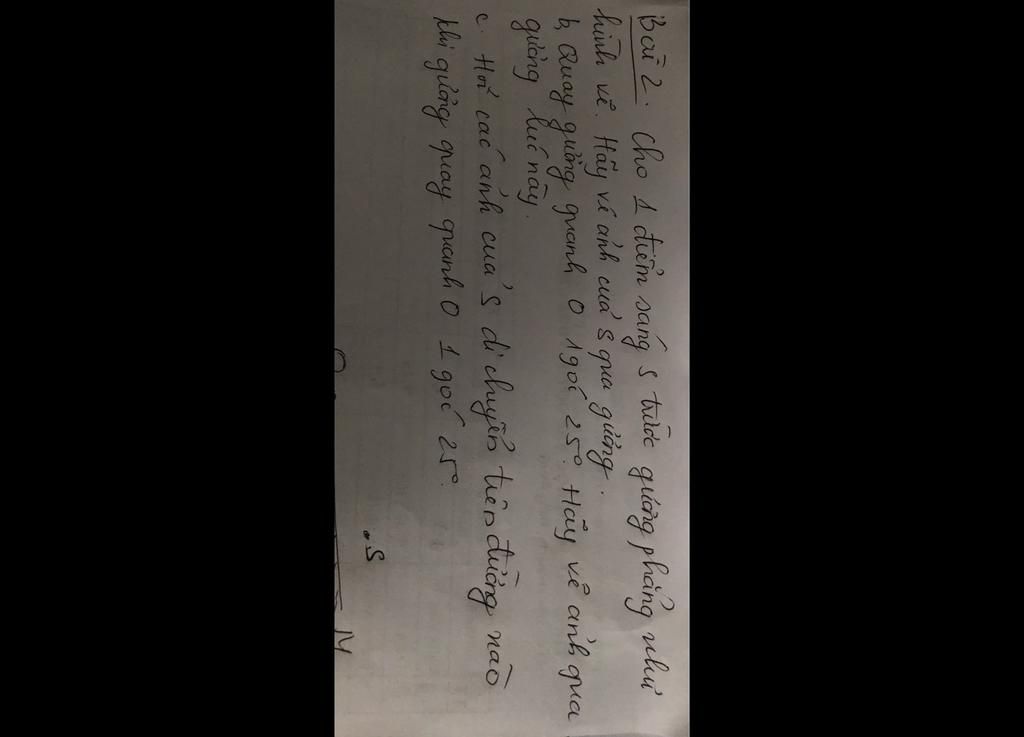 Bài 2. Cho 1 điểm sáng S trước gương phẳng như
hình vẽ. Hãy vẽ ảnh của S qua gương.
b, Quay gương quanh O 1 góc 25°. Hãy vẽ ảnh qua
gương lúc này.
c. Hỏi các ảnh của S di chuyển trên đường nào
khi gương quay quanh O 1 góc 25°.
.S
O M